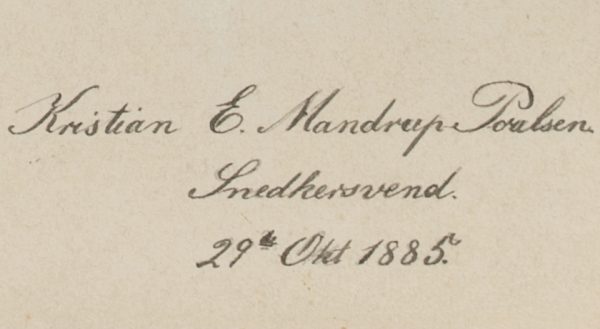 Kristian E. Mandrup Poulsen.
Snedkersvend.
29de Okt 1885.